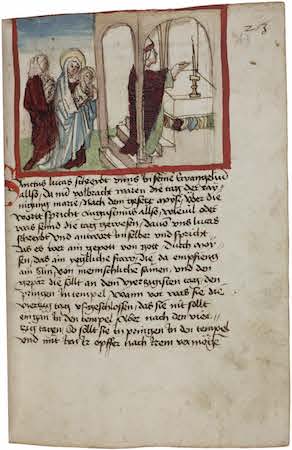 Sanctus lucas schreibt vnns in seinē Ewangeliū
allso, da nū volbracht waren die tag der ray-
nigung marie, Nach dem gesetz moysi, vber die
wort spricht augustinus allso, wieuil oder
was seind die tag gewesen, dauō vns lucas
schreibt Vnd antwort im selber vnd spricht
das es wer ain gepott von gott durch moy-
sen, das ain yegkliche fraw, die da empfieng
ain sun von mennschliche samen, vnd den
gepar die sollt an dem viertzigisten tag, den
pringen in tempel Wann vor was sie die
viertzig tag vsgeschlossen, das sie nit sollt
eingan in den tempel Aber nach den vier-
tzig tagen So sollt sie in pringen in den tempel
vnd mit im ir opffer nach irem vermöge